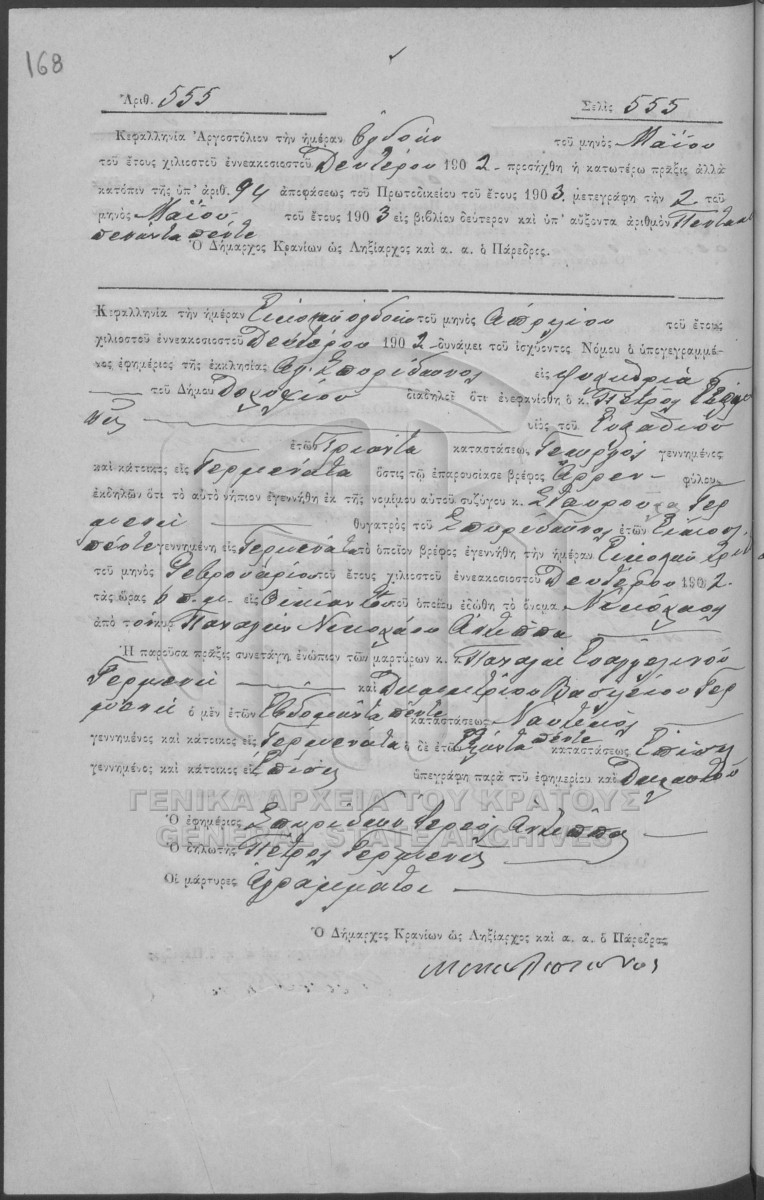 168
Ἀριθ. 555
Σελὶς 555
Κεφαλληνία Ἀργοστόλιον τὴν ἡμέραν ὀγδόην τοῦ μηνὸς Μαΐου
τοῦ ἔτους χιλιοστοῦ ἐννεακοσιοστοῦ Δευτέρου 1902 προσήχθη ἡ κατωτέρω πρᾶξις ἀλλὰ
κατόπιν τῆς ὑπ' ἀριθ. 94 ἀποφάσεως τοῦ Πρωτοδικείου τοῦ ἔτους 1903, μετεγράφη τὴν 2 τοῦ
μηνὸς Μαΐου τοῦ ἔτους 1903 εἰς βιβλίον δεύτερον καὶ ὑπ' αὔξοντα ἀριθμὸν Πεντακ
πεντήντα πέντε
Ὁ Δήμαρχος Κρανίων ὡς Ληξίαρχος καὶ α. α. ὁ Πάρεδρος.
Κεφαλληνία τὴν ἡμέραν Εἰκοστὴν ὀγδόην τοῦ μηνὸς Ἀπριλίου τοῦ ἔτους
χιλιοστοῦ ἐννεακοσιοστοῦ Δευτέρου 1902 δυνάμει τοῦ ἰσχύοντος Νόμου ὁ ὑπογεγραμμέ-
νος ἐφημέριος τῆς ἐκκλησίας Ἁγ. Σπυρίδωνος εἰς
τοῦ Δήμου Δολιχίου διαδηλοῖ ὅτι ἐνεφανίσθη ὁ κ. Πέτρος Γερμε
νῆς υἱὸς τοῦ
ἐτῶν Τριάντα καταστάσεως Γεωργὸς γεννημένος
καὶ κάτοικος εἰς Γερμενάτα ὅστις τῷ ἐπαρουσίασε βρέφος Ἄρρεν φύλου
ἐκδηλῶν ὅτι τὸ αὐτὸ νήπιον ἐγεννήθη ἐκ τῆς νομίμου αὐτοῦ συζύγου κ. Σταυρούλα Γερ
μενῆ θυγατρὸς τοῦ Σπυρίδωνος ἐτῶν Εἴκοσι
πέντε γεννημένη εἰς Γερμενάτα τὸ ὁποῖον βρέφος ἐγεννήθη τὴν ἡμέραν Εἰκοστὴν τρίτην
τοῦ μηνὸς Φεβρουαρίου τοῦ ἔτους χιλιοστοῦ ἐννεακοσιοστοῦ Δευτέρου 1902
τὰς ὥρας 6 π.μ. εἰς Οἰκίαν του τοῦ ὁποίου ἐδώθη τὸ ὄνομα Νικόλαος
ἀπὸ τὸν κύρ Παναγῆν Νικολάου Ἀντύπα
Ἡ παροῦσα πρᾶξις συνετάγη ἐνώπιον τῶν μαρτύρων κ. κ. Παναγῆ Εὐαγγελινοῦ
Γερμενῆ καὶ Δημητρίου Βασιλείου Γερ
μενῆ ὁ μὲν ἐτῶν Ἑβδομήντα πέντε καταστάσεως Ναυτικὸς
γεννημένος καὶ κάτοικος εἰς Γερμενάτα ὁ δὲ ἐτῶν Ἑξήντα πέντε καταστάσεως Ἐπίσης
γεννημένος καὶ κάτοικος εἰς Ἐπίσης ὑπεγράφη παρὰ τοῦ ἐφημερίου καὶ Δηλωτοῦ
ΓΕΝΙΚΑ ΑΡΧΕΙΑ ΤΟΥ ΚΡΑΤΟΥΣ
GENERAL STATE ARCHIVES
Ὁ ἐφημέριος Σπυρίδων Ἱερεὺς Ἀντύπας
Ὁ δηλωτὴς Πέτρος Γερμενῆς
Οἱ μάρτυρες Ἀγράμματοι
Ὁ Δήμαρχος Κρανίων ὡς Ληξίαρχος καὶ α. α. ὁ Πάρεδρος